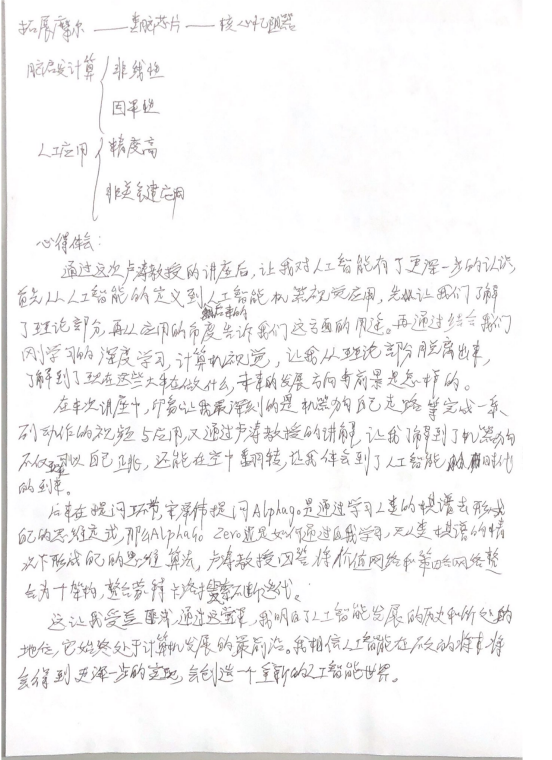 拓展摩尔——类脑芯片——核心忆阻器
脑启发计算 非线性
因果性
人工应用 精度高
非关键应用
心得体会:
通过这次卢涛教授的讲座后,让我对人工智能有了更深一步的认识,
首先从人工智能的定义到人工智能机器视觉应用,先让我们了解
了理论部分,再从应用的角度告诉我们这方面的用途。再通过结合我们
刚学习的深度学习,计算机视觉,让我从理论部分脱离出来,
了解到了现在这些大牛在做什么,未来的发展方向与前景是怎样的。
在本次讲座中,印象让我最深刻的是机器狗自己走路等完成一系
列动作的视频与应用,又通过卢涛教授的讲解,让我了解到了机器狗
不仅可以自己跳,还能在空中翻转,让我体会到了人工智能时代
的到来。
后来在提问环节,宋泽伟提问Alphago是通过学习人类的棋谱去形成
自己的思维定式,那么Alphago Zero就是如何通过自我学习,无人类棋谱的情
况下形成自己的思维算法,卢涛教授回答将价值网络和策略网络整
合为一个架构,整合蒙特卡洛搜索不断迭代。
这让我受益匪浅,通过这堂课,我明白了人工智能发展的历史和所处的
地位,它始终处于计算机发展的最前沿。我相信人工智能在不久的将来将
会得到更深一步的实现,会创造一个全新的人工智能世界。